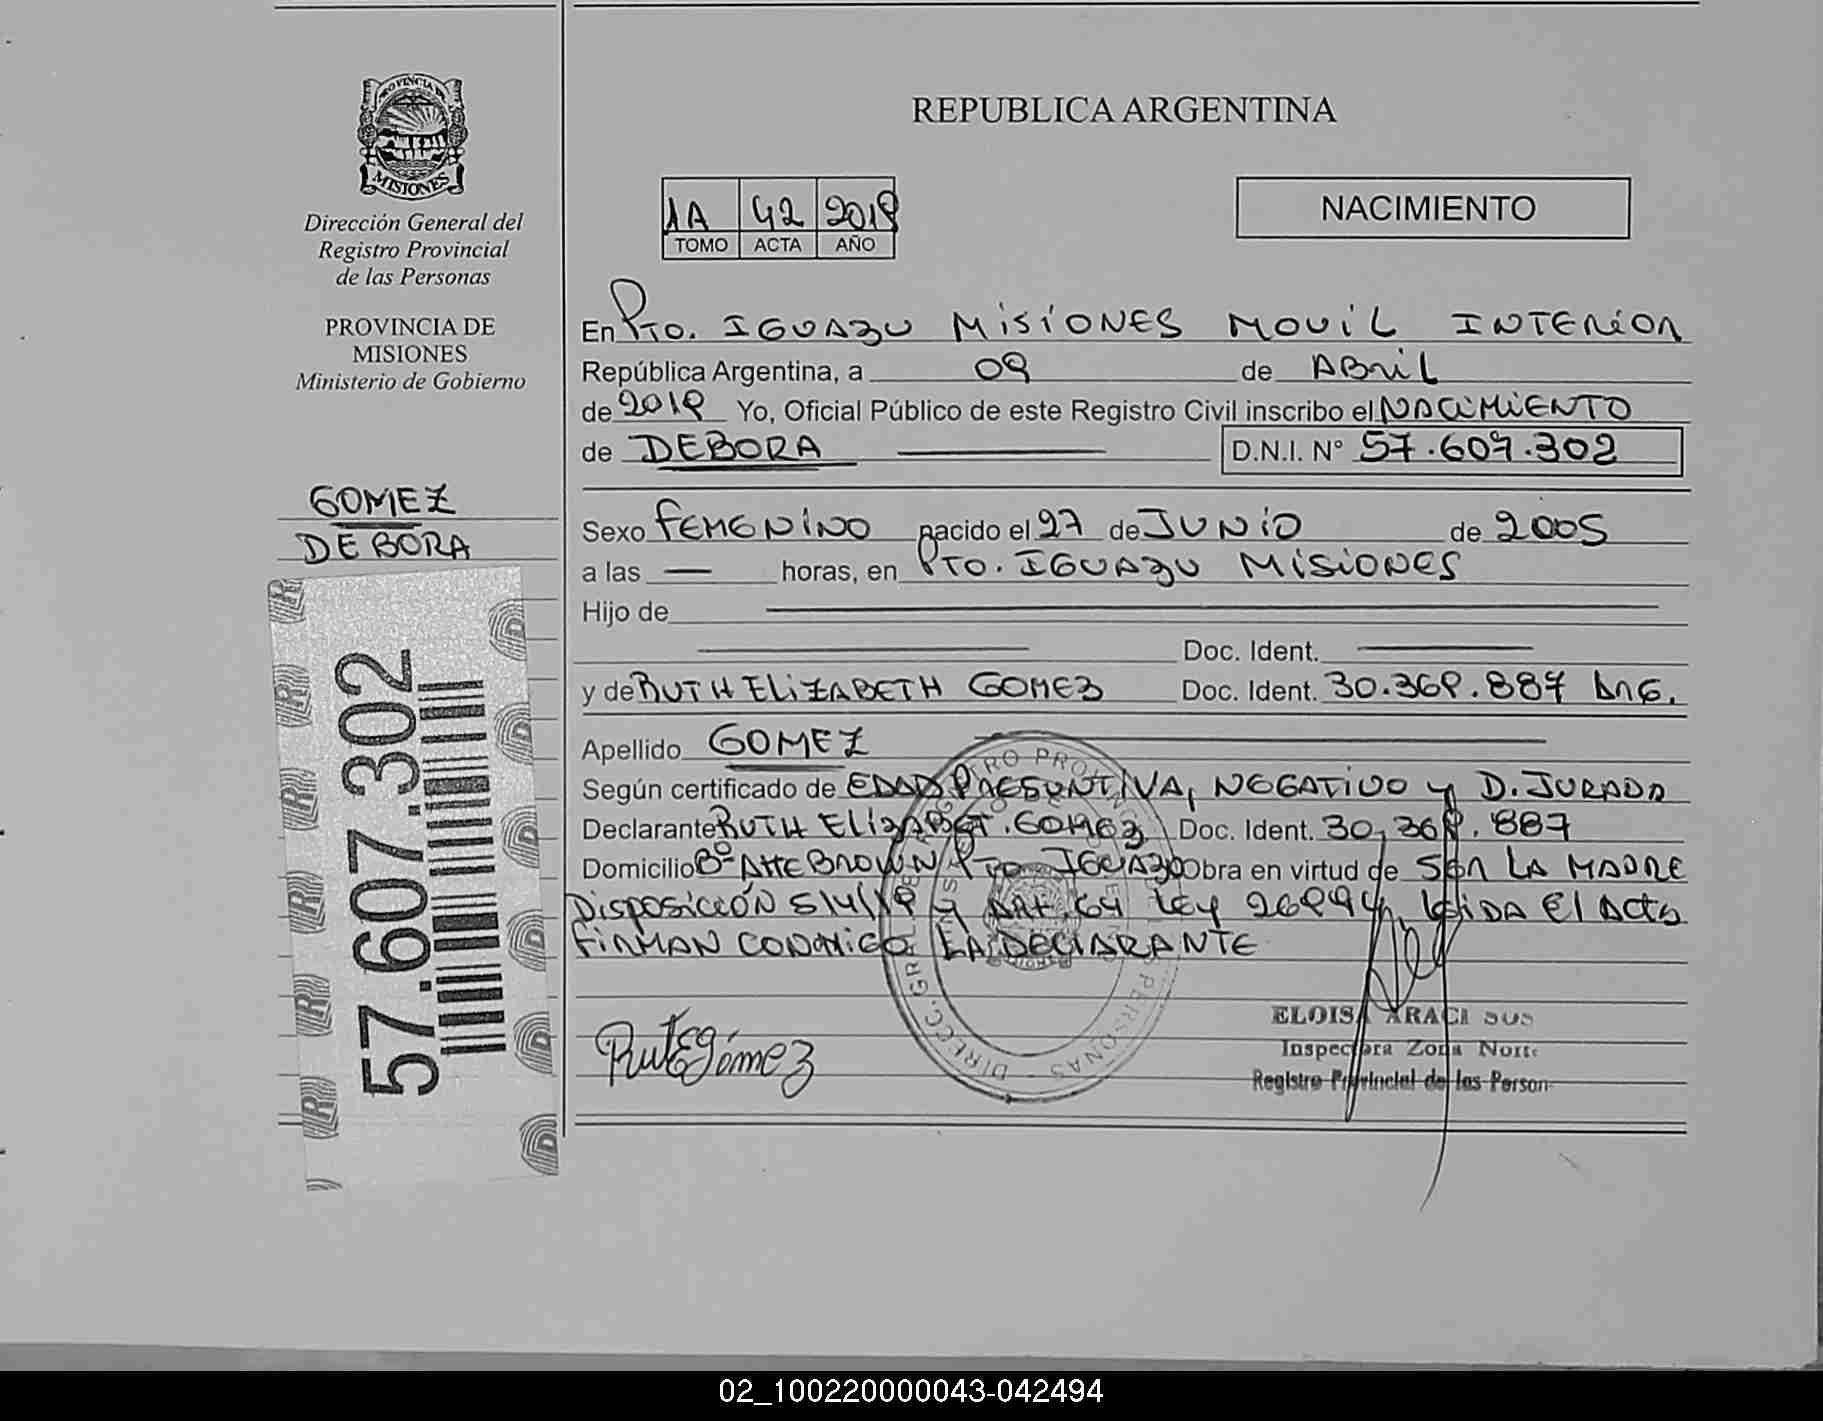 PROVINCIA DE
MISIONES
Dirección General del
Registro Provincial
de las Personas
PROVINCIA DE
MISIONES
Ministerio de Gobierno
GOMEZ
DEBORA
57.607.302
REPUBLICA ARGENTINA
1A 42 2019
TOMO ACTA AÑO
NACIMIENTO
En Pto. IGUAZU MISIONES MOVIL INTERIOR
República Argentina, a 09 de ABRIL
de 2019 Yo, Oficial Público de este Registro Civil inscribo el NACIMIENTO
de DEBORA D.N.I. N° 57.607.302
Sexo FEMENINO nacido el 27 de JUNIO de 2005
a las — horas, en Pto. IGUAZU MISIONES
Hijo de
Doc. Ident.
y de RUTH ELIZABETH GOMEZ Doc. Ident. 30.369.887 ARG.
Apellido GOMEZ
Según certificado de EDAD PRESUNTIVA, NEGATIVO y D. JURADA
Declarante RUTH ELIZABET. GOMEZ Doc. Ident. 30,369.887
Domicilio Bº Atte BROWN Pto IGUAZU Obra en virtud de SER LA MADRE
Disposición 5/4/19 y Art. 64 Ley 26994, leida El Acta
FIRMAN CONMIGO LA DECLARANTE
Rut E Gómez
ELOISA ARACI
Inspectora Zona Norte
Registro Provincial de las Person
02_100220000043-042494